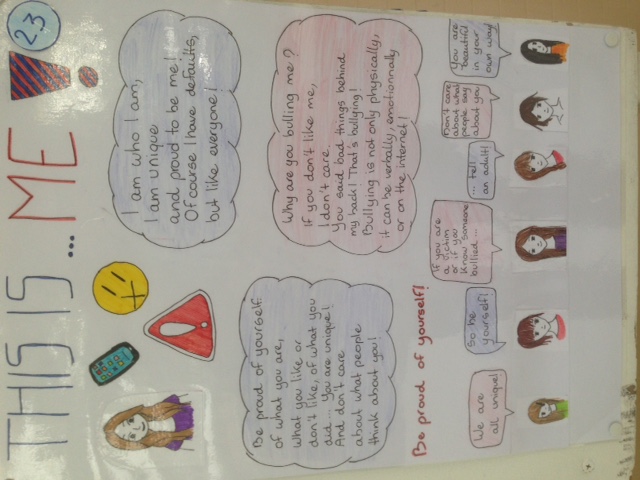 THIS IS ... ME !
23
I am who I am,
I am unique
and proud to be me!
Of course I have defaults,
but like everyone!
Be proud of yourself.
of what you are,
what you like or
don't like, of what you
did... You are unique!
And don't care
about what people
think about you!
Why are you bulling me?
If you don't like me,
I don't care.
You said bad things behind
my back! That's bullying!
Bullying is not only physically,
it can be verbally, emotionnally
or on the internet!
Be proud of yourself!
We are
all unique!
So be
yourself!
If you are
a victim
or if you
know someone
bullied...
... tell
an adult!
Don't care
about what
people say
about you
You are
beautiful
in your
own way!